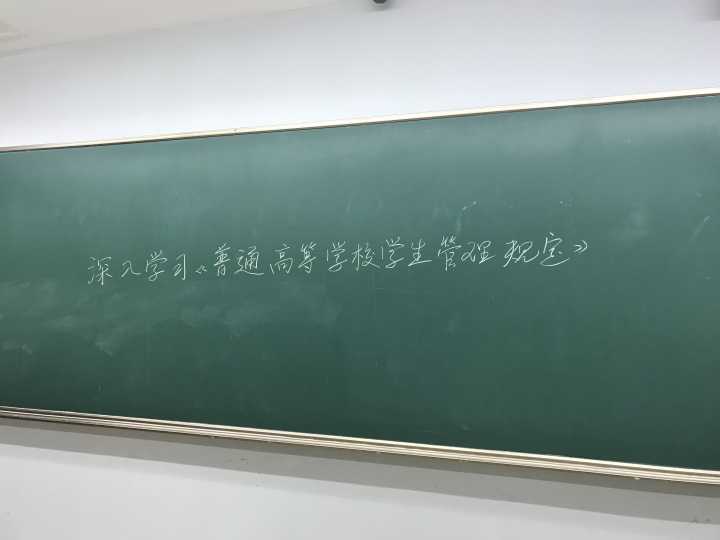 深入学习《普通高等学校学生管理规定》